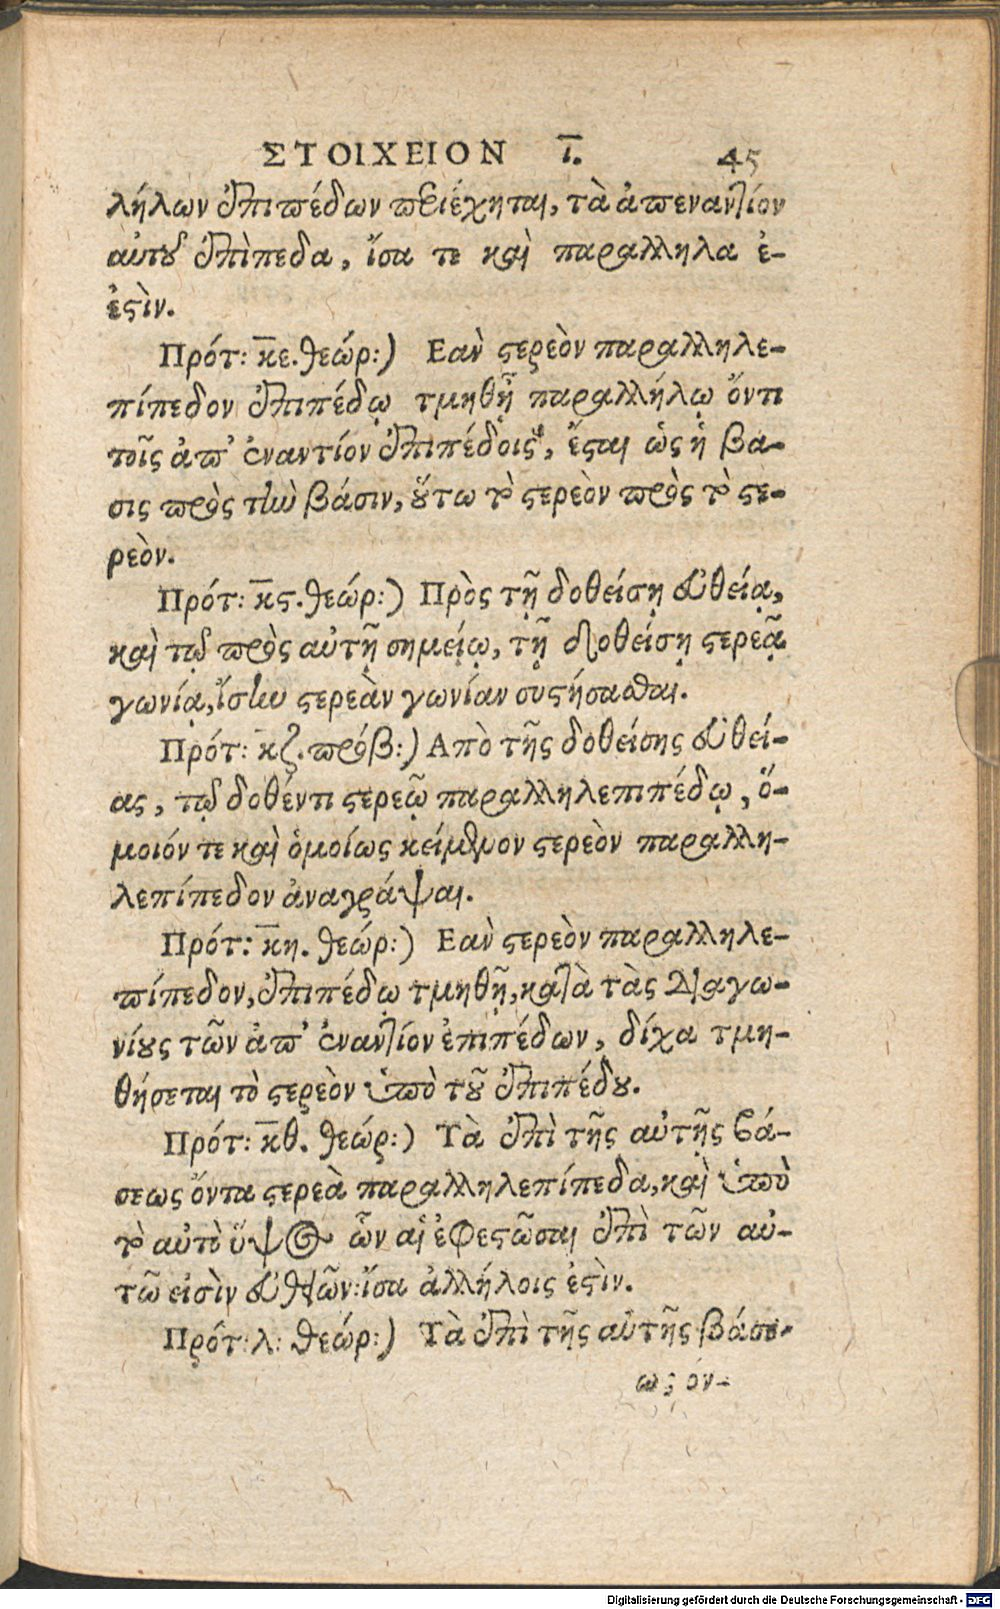 ΣΤΟΙΧΕΙΟΝ ι̅. 45
λήλων ἐπιπέδων περιέχηται, τὰ ἀπεναντίον
αὐτοῦ ἐπίπεδα, ἴσα τε καὶ παραλληλα ἐ-
ἐστὶν.
Πρότ: κ̅ε. θεώρ:) Εαν στερεὸν παραλληλε-
πίπεδον ἐπιπέδῳ τμηθῇ παραλλήλῳ ὄντι
τοῖς ἀπ' ἐναντίον ἐπιπέδοις, ἔσται ὡς ἡ βα-
σις πρὸς τὴν βάσιν, οὕτω τὸ στερεὸν πρὸς τὸ στε-
ρεὸν.
Πρότ: κ̅ς. θεώρ:) Πρὸς τῇ δοθείσῃ εὐθείᾳ,
καὶ τῷ πρὸς αὐτῇ σημείῳ, τῇ δοθείσῃ στερεᾷ
γωνίᾳ, ἴσην στερεὰν γωνίαν συστήσασθαι.
Πρότ: κ̅ζ. πρόβ:) Απὸ τῆς δοθείσης εὐθεί-
ας, τῷ δοθέντι στερεῷ παραλληλεπιπέδῳ, ὅ-
μοιόν τε καὶ ὁμοίως κείμενον στερεὸν παραλλη-
λεπίπεδον ἀναγράψαι.
Πρότ: κ̅η. θεώρ:) Εαν στερεὸν παραλληλε-
πίπεδον, ἐπιπέδῳ τμηθῇ, κατὰ τὰς διαγω-
νίους τῶν ἀπ' ἐναντίον ἐπιπέδων, δίχα τμη-
θήσεται τὸ στερεὸν ὑπὸ τοῦ ἐπιπέδου.
Πρότ: κ̅θ. θεώρ:) Τὰ ἐπὶ τῆς αὐτῆς βά-
σεως ὄντα στερεὰ παραλληλεπίπεδα, καὶ ὑπὸ
τὸ αὐτὸ ὕψος ὧν αἱ ἐφεστῶσαι ἐπὶ τῶν αὐ-
τῶ εἰσὶν εὐθειῶν: ἴσα ἀλλήλοις ἐστὶν.
Πρότ: λ: θεώρ:) Τὰ ἐπὶ τῆς αὐτῆς βάσε-
ως όν-
Digitalisierung gefördert durch die Deutsche Forschungsgemeinschaft - DFG